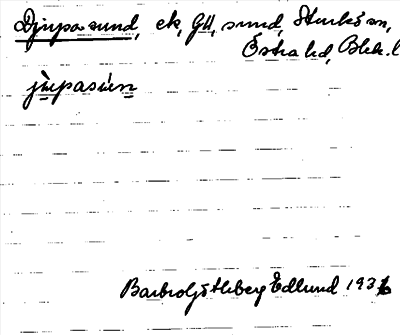 Djupasund, ek, GH, sund, Sturkö sn,
Östra hd, Blek. l
jùpasún
Barbro Götlberg Edlund 1936